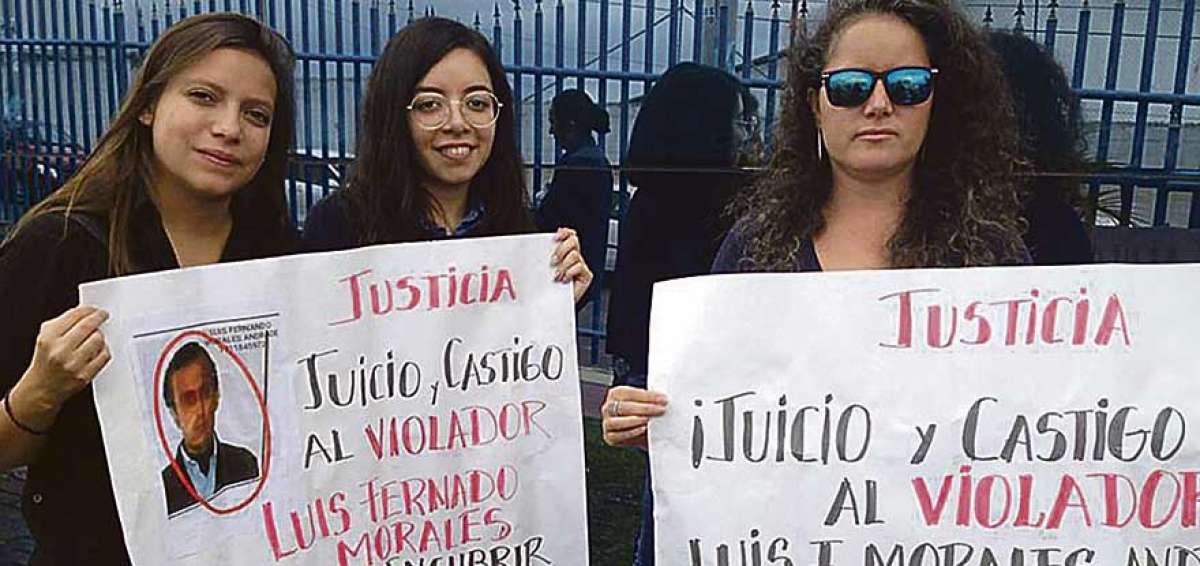 JUSTICIA
LUIS FERNANDO
MORALES ANDRADE
JUICIO y CASTIGO
AL VIOLADOR
LUIS FERNADO
MORALES
ENCUBRIR
JUSTICIA
¡JUICIO y CASTIGO
AL VIOLADOR
LUIS F. MORALES AND